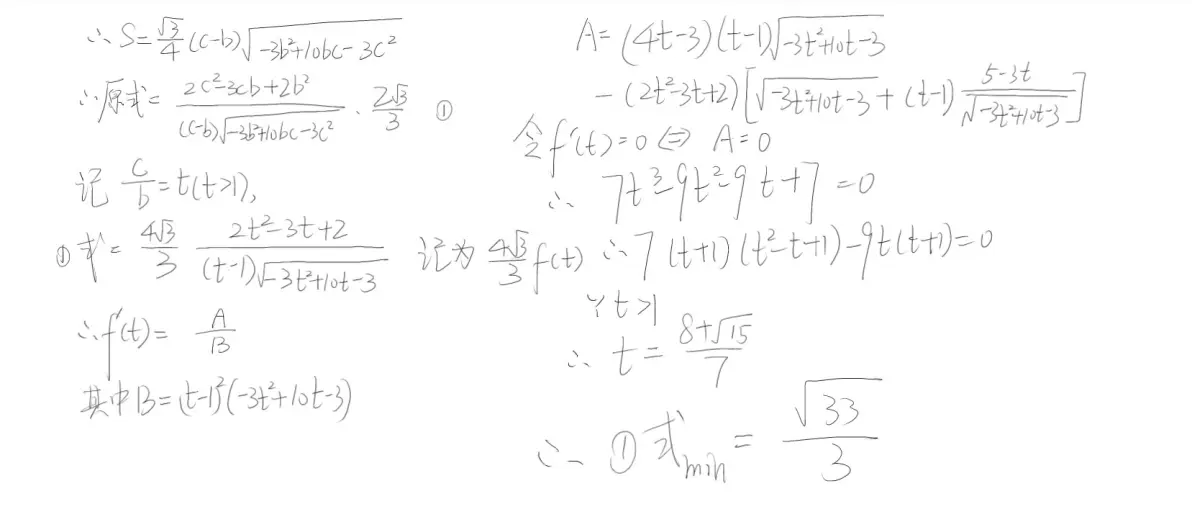 ∴ S=√3/4 (c-b)√(-3b²+10bc-3c²)
∴原式= (2c²-3cb+2b²)/((c-b)√(-3b²+10bc-3c²)) · 2√3/3 ①
记 c/b=t(t>1),
①式= 4√3/3 (2t²-3t+2)/((t-1)√(-3t²+10t-3)) 记为 4√3/3 f(t)
∴f'(t)= A/B
其中B=(t-1)²(-3t²+10t-3)
A=(4t-3)(t-1)√(-3t²+10t-3)
-(2t²-3t+2)[√(-3t²+10t-3)+(t-1) (5-3t)/√(-3t²+10t-3)]
令f'(t)=0⇔A=0
∴ 7t³-9t²-9t+7=0
∴7(t+1)(t²-t+1)-9t(t+1)=0
又t>1
∴ t= (8+√15)/7
∴ ①式min = √33/3